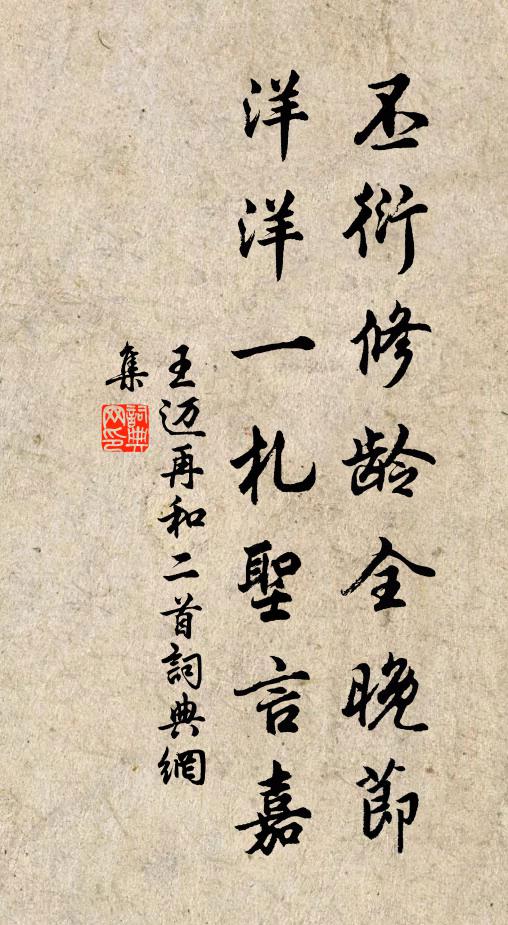 丕衍修龄全晚節
洋洋一札聖言嘉
王迈再和二首詞典網
集
詞典
网印